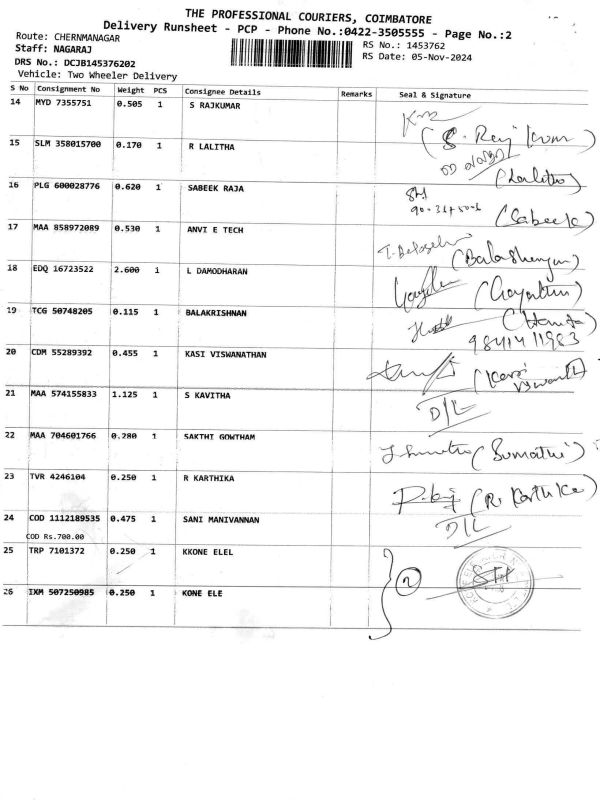 THE PROFESSIONAL COURIERS, COIMBATORE
Delivery Runsheet - PCP - Phone No.:0422-3505555 - Page No.:2
Route: CHERNMANAGAR
RS No.: 1453762
Staff: NAGARAJ
RS Date: 05-Nov-2024
DRS No.: DCJB145376202
Vehicle: Two Wheeler Delivery
S No Consignment No Weight PCS Consignee Details Remarks Seal & Signature
14 MYD 7355751 0.505 1 S RAJKUMAR
(S. Raj kum)
15 SLM 358015700 0.170 1 R LALITHA
(Lalitha)
16 PLG 600028776 0.620 1 SABEEK RAJA
(Sabeek)
17 MAA 858972089 0.530 1 ANVI E TECH
18 EDQ 16723522 2.600 1 L DAMODHARAN
(Gayathri)
19 TCG 50748205 0.115 1 BALAKRISHNAN
20 CDM 55289392 0.455 1 KASI VISWANATHAN
21 MAA 574155833 1.125 1 S KAVITHA
D/L
22 MAA 704601766 0.280 1 SAKTHI GOWTHAM
(Sumathi)
23 TVR 4246104 0.250 1 R KARTHIKA
(R. Karthika)
24 COD 1112189535 0.475 1 SANI MANIVANNAN
D/L
COD Rs.700.00
25 TRP 7101372 0.250 1 KKONE ELEL
2
26 IXM 507250985 0.250 1 KONE ELE